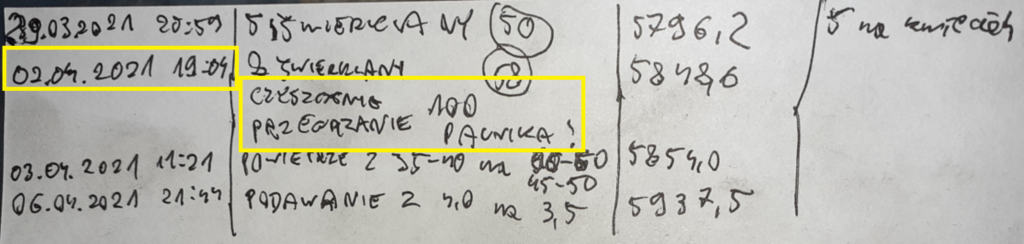 29.03.2021 20:59 5 ŚWIERKLANY 50 5796,2 5 na kwiecień
02.04.2021 19:04 2 ŚWIERKLANY 58 5848,6
CZYSZCZENIE 100
PRZEGRZANIE PALNIKA!
03.04.2021 11:21 POWIETRZE Z 35-40 na 50 5854,0
45-50
06.04.2021 21:44 PODAWANIE Z 4,0 na 3,5 5937,5